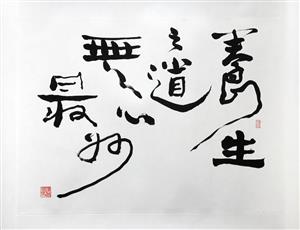 養生
之道
無心
最妙